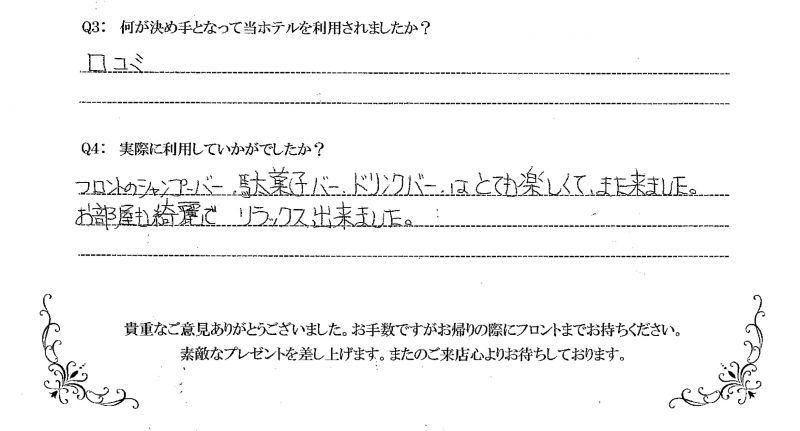 Q3： 何が決め手となって当ホテルを利用されましたか？
口コミ
Q4： 実際に利用していかがでしたか？
フロントのシャンプーバー、駄菓子バー、ドリンクバー、はとても楽しくて、また来ました。
お部屋も綺麗で リラックス出来ました。
貴重なご意見ありがとうございました。お手数ですがお帰りの際にフロントまでお持ちください。
素敵なプレゼントを差し上げます。またのご来店心よりお待ちしております。